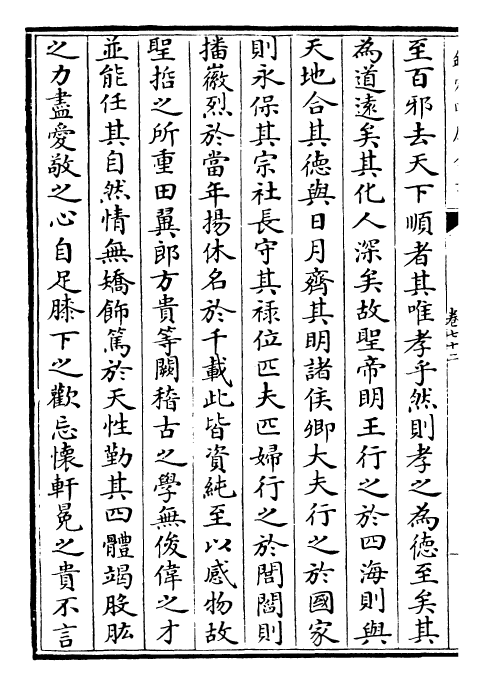 至百邪去天下順者其唯孝乎然則孝之為德至矣其
為道遠矣其化人深矣故聖帝明王行之於四海則與
天地合其德與日月齊其明諸侯卿大夫行之於國家
則永保其宗社長守其禄位匹夫匹婦行之於閭閻則
播徽烈於當年揚休名於千載此皆資純至以感物故
聖哲之所重田翼郎方貴等闕稽古之學無俊偉之才
並能任其自然情無矯飾篤於天性勤其四體竭股肱
之力盡愛敬之心自足膝下之歡忘懷軒冕之貴不言
卷七十二